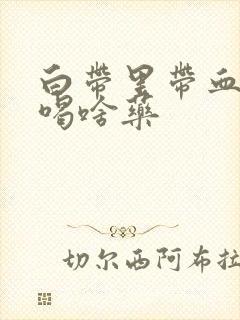 白带里带血
喝啥药
切尔西阿布拉